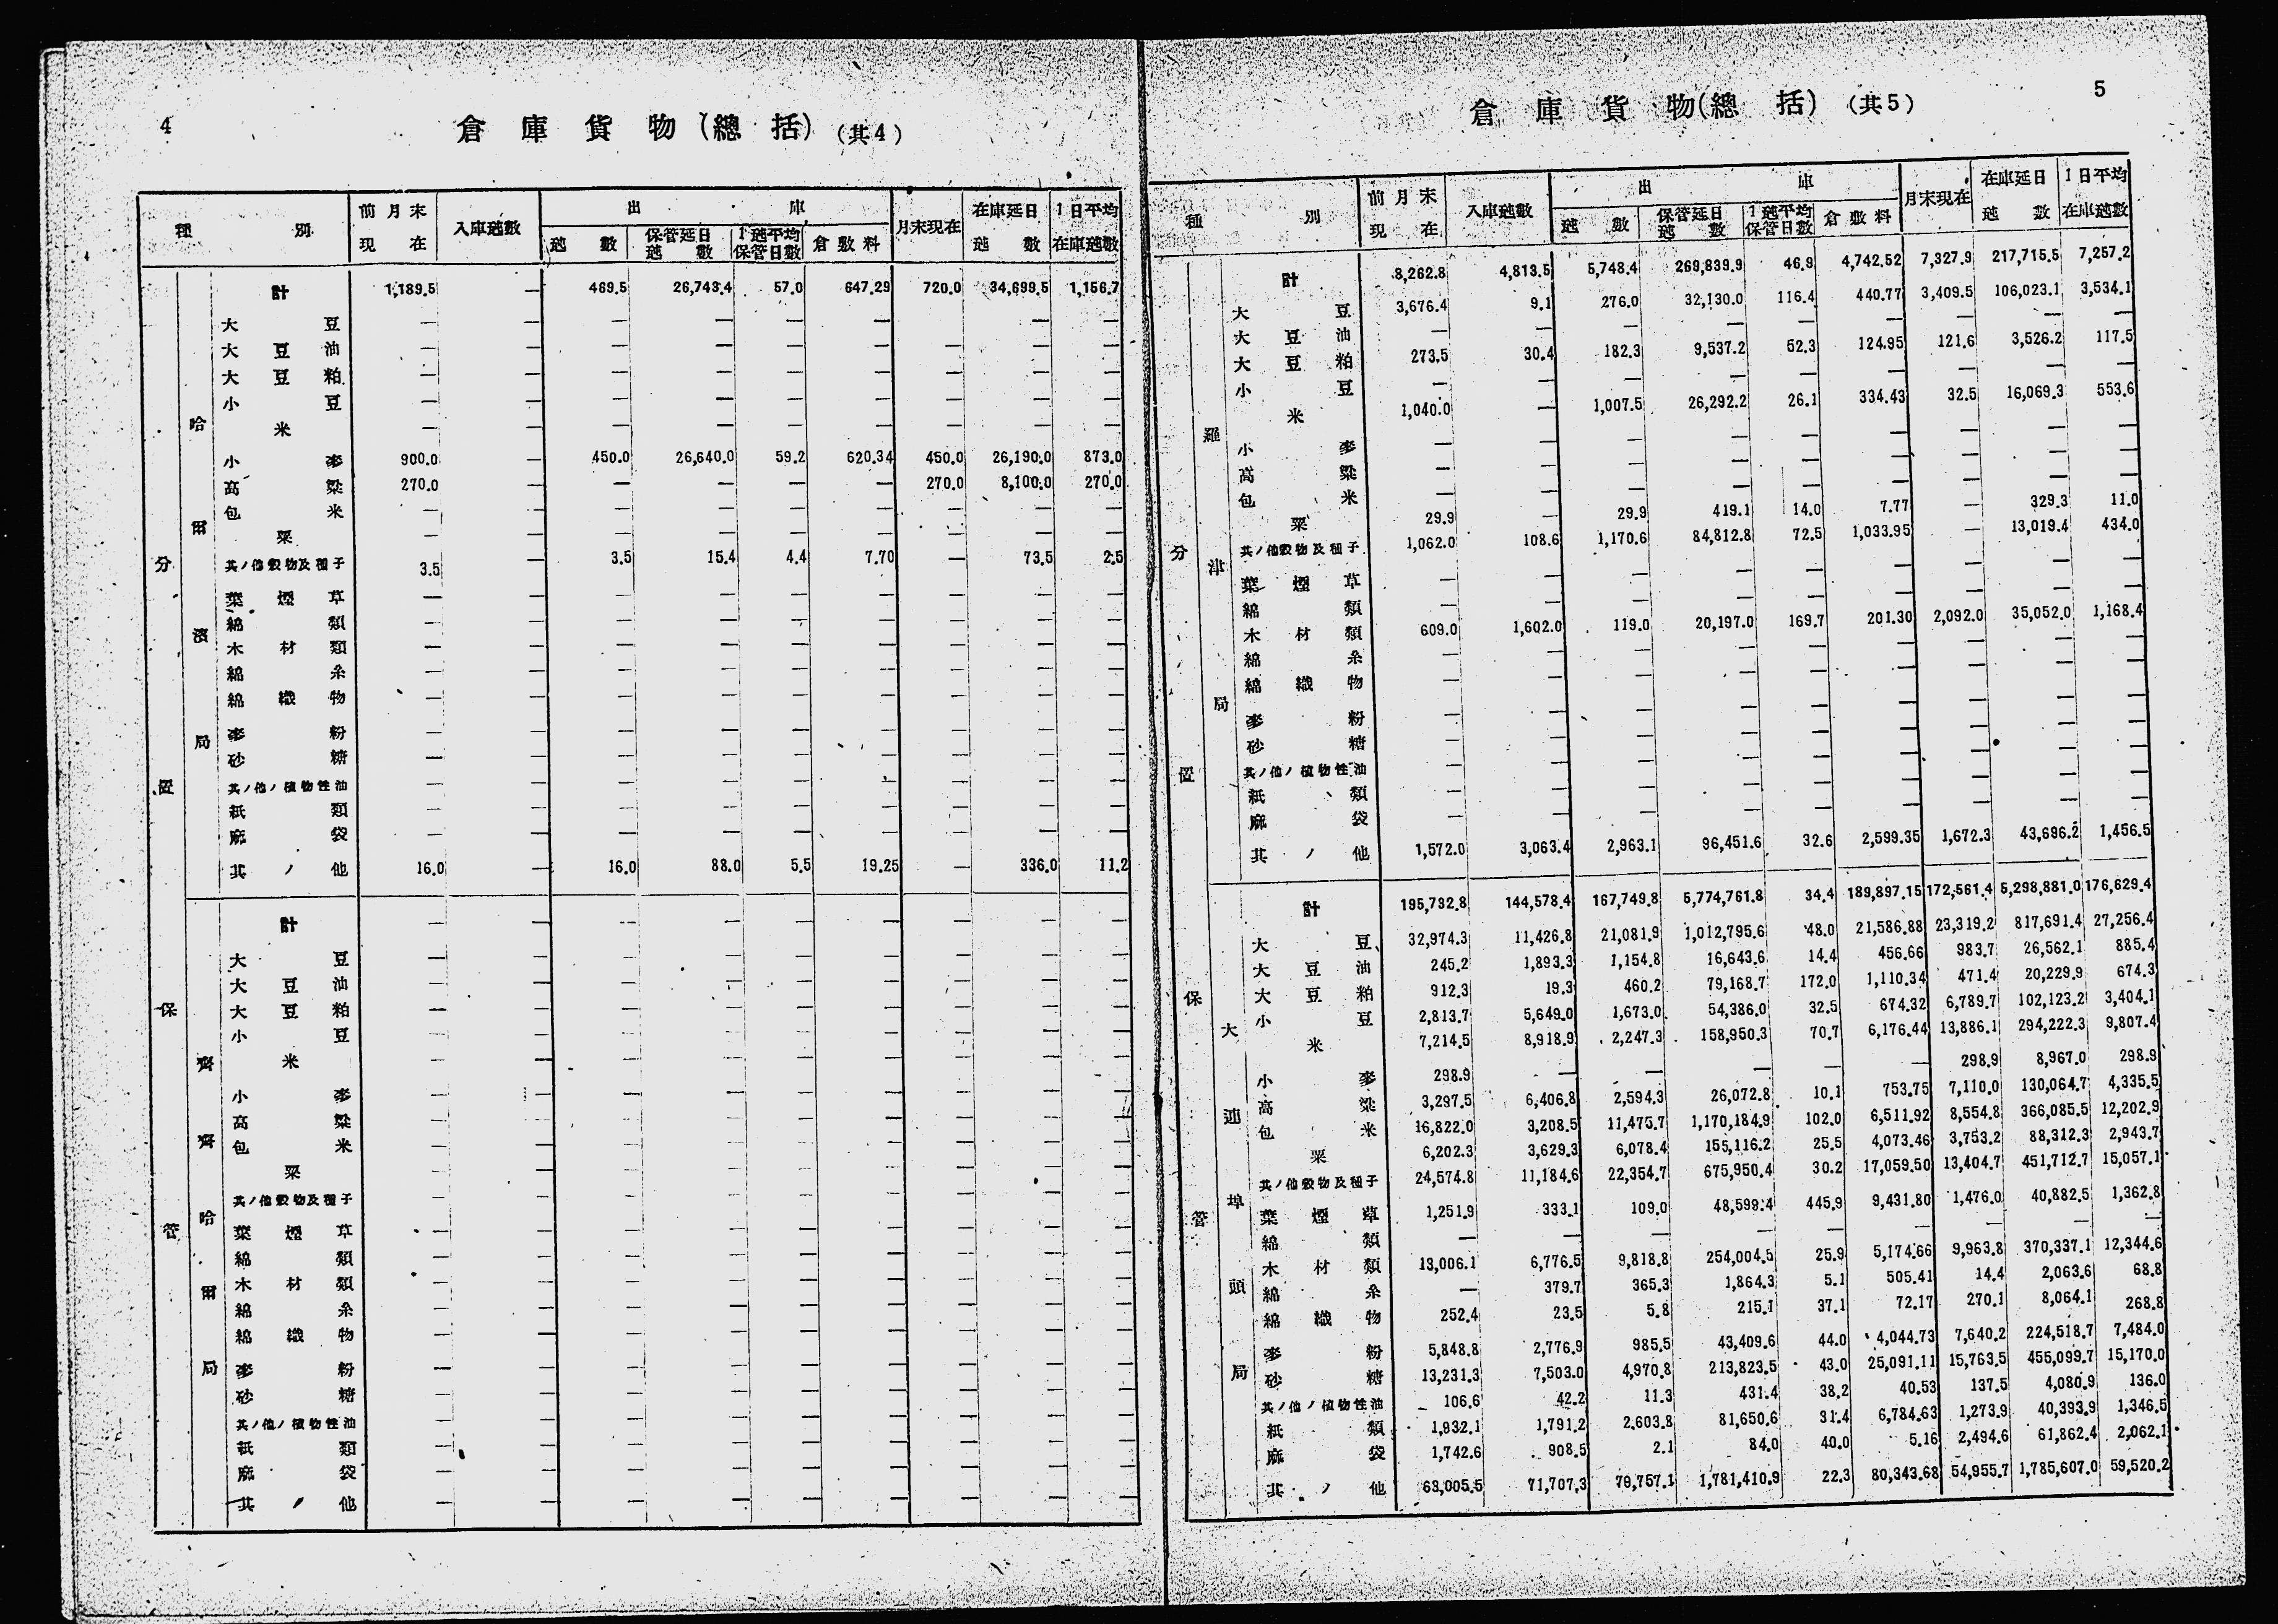 4
倉庫貨物(總括)(其4)
種別 前月末現在 入庫瓲數 出庫 月末現在 在庫延日瓲數 1日平均在庫瓲數
瓲數 保管延日瓲數 1瓲平均保管日數 倉敷料
分置保管
哈爾濱局
計 1,189.5 — 469.5 26,743.4 57.0 647.29 720.0 34,699.5 1,156.7
大豆 — — — — — — — — —
大豆油 — — — — — — — — —
大豆粕 — — — — — — — — —
小豆 — — — — — — — — —
米 — — — — — — — — —
小麥 900.0 — 450.0 26,640.0 59.2 620.34 450.0 26,190.0 873.0
高粱 270.0 — — — — — 270.0 8,100.0 270.0
包米 — — — — — — — — —
粟 — — — — — — — — —
其ノ他穀物及種子 3.5 — 3.5 15.4 4.4 7.70 — 73.5 2.5
葉煙草 — — — — — — — — —
綿類 — — — — — — — — —
木材類 — — — — — — — — —
綿糸 — — — — — — — — —
綿織物 — — — — — — — — —
麥粉 — — — — — — — — —
砂糖 — — — — — — — — —
其ノ他ノ植物性油 — — — — — — — — —
紙類 — — — — — — — — —
麻袋 — — — — — — — — —
其ノ他 16.0 — 16.0 88.0 5.5 19.25 — 336.0 11.2
齊齊哈爾局
計 — — — — — — — — —
大豆 — — — — — — — — —
大豆油 — — — — — — — — —
大豆粕 — — — — — — — — —
小豆 — — — — — — — — —
米 — — — — — — — — —
小麥 — — — — — — — — —
高粱 — — — — — — — — —
包米 — — — — — — — — —
粟 — — — — — — — — —
其ノ他穀物及種子 — — — — — — — — —
葉煙草 — — — — — — — — —
綿類 — — — — — — — — —
木材類 — — — — — — — — —
綿糸 — — — — — — — — —
綿織物 — — — — — — — — —
麥粉 — — — — — — — — —
砂糖 — — — — — — — — —
其ノ他ノ植物性油 — — — — — — — — —
紙類 — — — — — — — — —
麻袋 — — — — — — — — —
其ノ他 — — — — — — — — —
5
倉庫貨物(總括)(其5)
種別 前月末現在 入庫瓲數 出庫 月末現在 在庫延日瓲數 1日平均在庫瓲數
瓲數 保管延日瓲數 1瓲平均保管日數 倉敷料
分置保管
羅津局
計 8,262.8 4,813.5 5,748.4 269,839.9 46.9 4,742.52 7,327.9 217,715.5 7,257.2
大豆 3,676.4 9.1 276.0 32,130.0 116.4 440.77 3,409.5 106,023.1 3,534.1
大豆油 — — — — — — — — —
大豆粕 273.5 30.4 182.3 9,537.2 52.3 124.95 121.6 3,526.2 117.5
小豆 — — — — — — — — —
米 1,040.0 — 1,007.5 26,292.2 26.1 334.43 32.5 16,069.3 553.6
小麥 — — — — — — — — —
高粱 — — — — — — — — —
包米 — — — — — — — — —
粟 29.9 — 29.9 419.1 14.0 7.77 — 329.3 11.0
其ノ他穀物及種子 1,062.0 108.6 1,170.6 84,812.8 72.5 1,033.95 — 13,019.4 434.0
葉煙草 — — — — — — — — —
綿類 — — — — — — — — —
木材類 609.0 1,602.0 119.0 20,197.0 169.7 201.30 2,092.0 35,052.0 1,168.4
綿糸 — — — — — — — — —
綿織物 — — — — — — — — —
麥粉 — — — — — — — — —
砂糖 — — — — — — — — —
其ノ他ノ植物性油 — — — — — — — — —
紙類 — — — — — — — — —
麻袋 — — — — — — — — —
其ノ他 1,572.0 3,063.4 2,963.1 96,451.6 32.6 2,599.35 1,672.3 43,696.2 1,456.5
大連埠頭局
計 195,732.8 144,578.4 167,749.8 5,774,761.8 34.4 189,897.15 172,561.4 5,298,881.0 176,629.4
大豆 32,974.3 11,426.8 21,081.9 1,012,795.6 48.0 21,586.88 23,319.2 817,691.4 27,256.4
大豆油 245.2 1,893.3 1,154.8 16,643.6 14.4 456.66 983.7 26,562.1 885.4
大豆粕 912.3 19.3 460.2 79,168.7 172.0 1,110.34 471.4 20,229.9 674.3
小豆 2,813.7 5,649.0 1,673.0 54,386.0 32.5 674.32 6,789.7 102,123.2 3,404.1
米 7,214.5 8,918.9 2,247.3 158,950.3 70.7 6,176.44 13,886.1 294,222.3 9,807.4
小麥 298.9 — — — — — 298.9 8,967.0 298.9
高粱 3,297.5 6,406.8 2,594.3 26,072.8 10.1 753.75 7,110.0 130,064.7 4,335.5
包米 16,822.0 3,208.5 11,475.7 1,170,184.9 102.0 6,511.92 8,554.8 366,085.5 12,202.9
粟 6,202.3 3,629.3 6,078.4 155,116.2 25.5 4,073.46 3,753.2 88,312.3 2,943.7
其ノ他穀物及種子 24,574.8 11,184.6 22,354.7 675,950.4 30.2 17,059.50 13,404.7 451,712.7 15,057.1
葉煙草 1,251.9 333.1 109.0 48,599.4 445.9 9,431.80 1,476.0 40,882.5 1,362.8
綿類 — — — — — — — — —
木材類 13,006.1 6,776.5 9,818.8 254,004.5 25.9 5,174.66 9,963.8 370,337.1 12,344.6
綿糸 — 379.7 365.3 1,864.3 5.1 505.41 14.4 2,063.6 68.8
綿織物 252.4 23.5 5.8 215.1 37.1 72.17 270.1 8,064.1 268.8
麥粉 5,848.8 2,776.9 985.5 43,409.6 44.0 4,044.73 7,640.2 224,518.7 7,484.0
砂糖 13,231.3 7,503.0 4,970.8 213,823.5 43.0 25,091.11 15,763.5 455,099.7 15,170.0
其ノ他ノ植物性油 106.6 42.2 11.3 431.4 38.2 40.53 137.5 4,080.9 136.0
紙類 1,932.1 1,791.2 2,603.8 81,650.6 31.4 6,784.63 1,273.9 40,393.9 1,346.5
麻袋 1,742.6 908.5 2.1 84.0 40.0 5.16 2,494.6 61,862.4 2,062.1
其ノ他 63,005.5 71,707.3 79,757.1 1,781,410.9 22.3 80,343.68 54,955.7 1,785,607.0 59,520.2